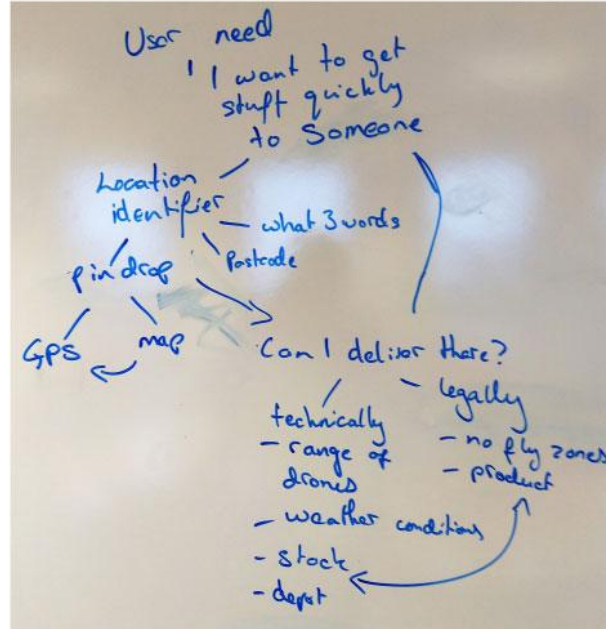 User need
" I want to get
stuff quickly
to Someone
Location
identifier
what 3 words
Postcode
pin drop
GPS
map
Can I deliver there?
technically
- range of
drones
- weather conditions
- stock
- depot
- legally
- no fly zones
- product